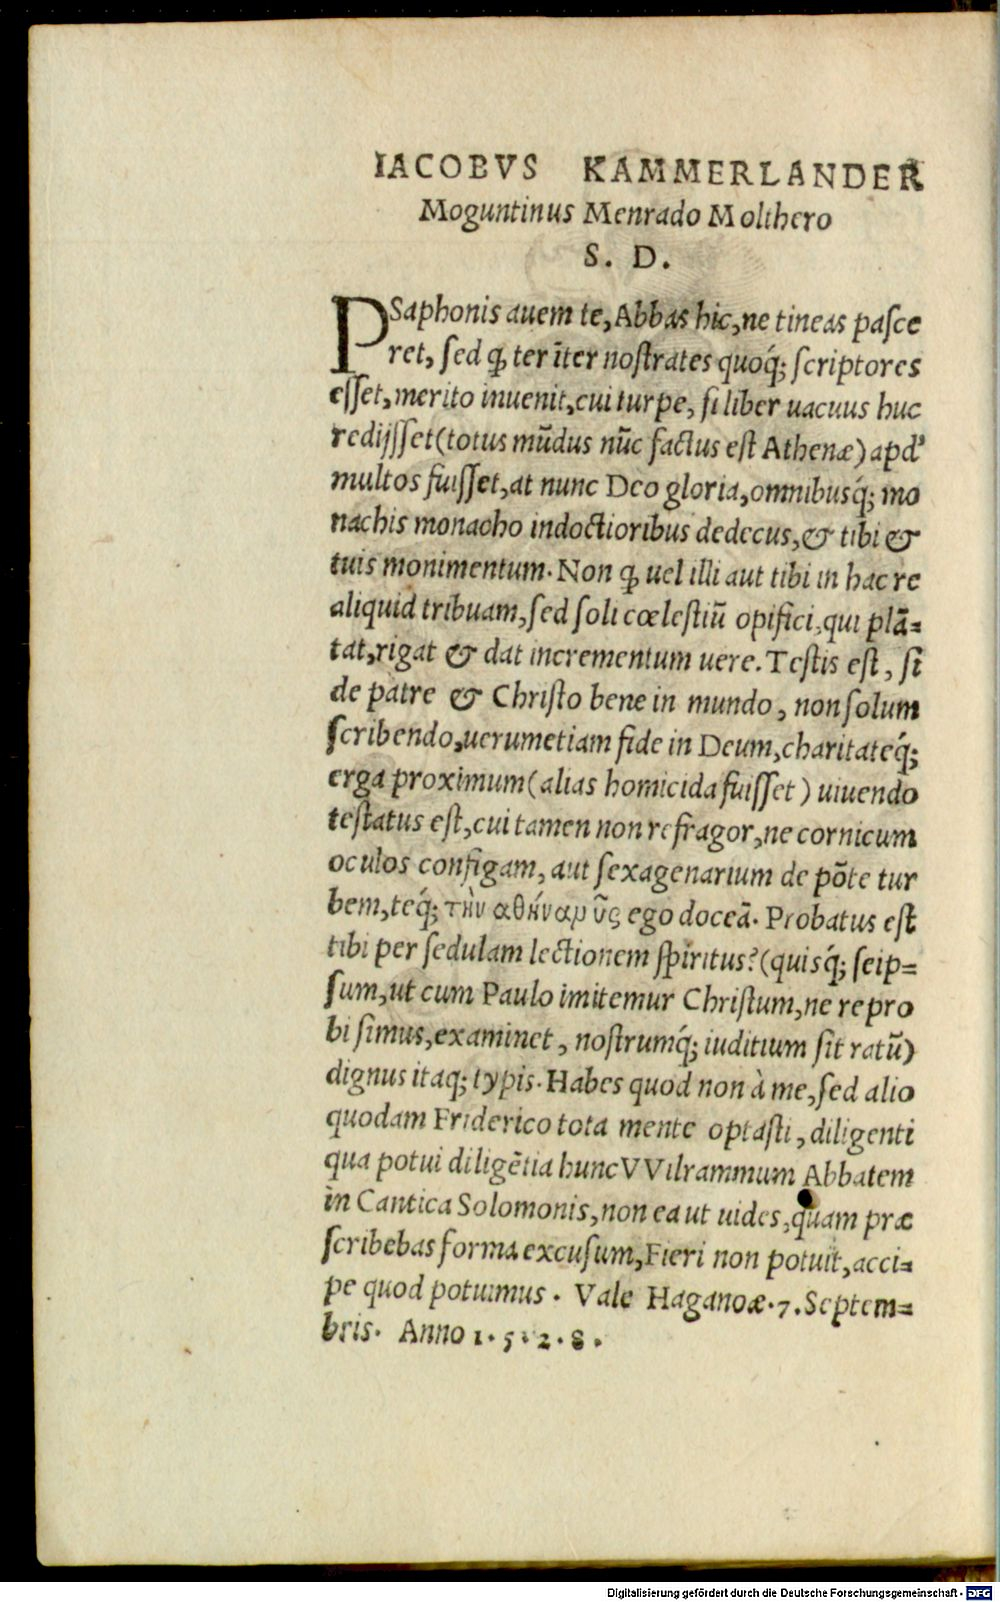 IACOBVS KAMMERLANDER
Moguntinus Menrado Molthero
S. D.
PSaphonis auem te, Abbas hic, ne tineas pasce
ret, sed ꝙ ter īter nostrates quoq́; scriptores
esset, merito inuenit, cui turpe, si liber uacuus huc
redijsset (totus mūdus nūc factus est Athenæ) apd'
multos fuisset, at nunc Deo gloria, omnibusq́; mo
nachis monacho indoctioribus dedecus, & tibi &
tuis monimentum. Non ꝙ uel illi aut tibi in hac re
aliquid tribuam, sed soli cœlestiū opifici, qui plā=
tat, rigat & dat incrementum uere. Testis est, si
de patre & Christo bene in mundo, non solum
scribendo, uerumetiam fide in Deum, charitateq́;
erga proximum (alias homicida fuisset) uiuendo
testatus est, cui tamen non refragor, ne cornicum
oculos configam, aut sexagenarium de pōte tur
bem, teq́; τὴν ἀθήναμ ὗς ego doceā. Probatus est
tibi per sedulam lectionem spiritus? (quisq́; seip=
sum, ut cum Paulo imitemur Christum, ne repro
bi simus, examinet, nostrumq́; iuditium sit ratū)
dignus itaq; typis. Habes quod non à me, sed alio
quodam Friderico tota mente optasti, diligenti
qua potui diligētia hunc VVilrammum Abbatem
in Cantica Solomonis, non ea ut uides, quam præ
scribebas forma excusum, Fieri non potuit, acci=
pe quod potuimus. Vale Haganoæ. 7. Septem=
bris. Anno 1. 5. 2. 8.
Digitalisierung gefördert durch die Deutsche Forschungsgemeinschaft - DFG